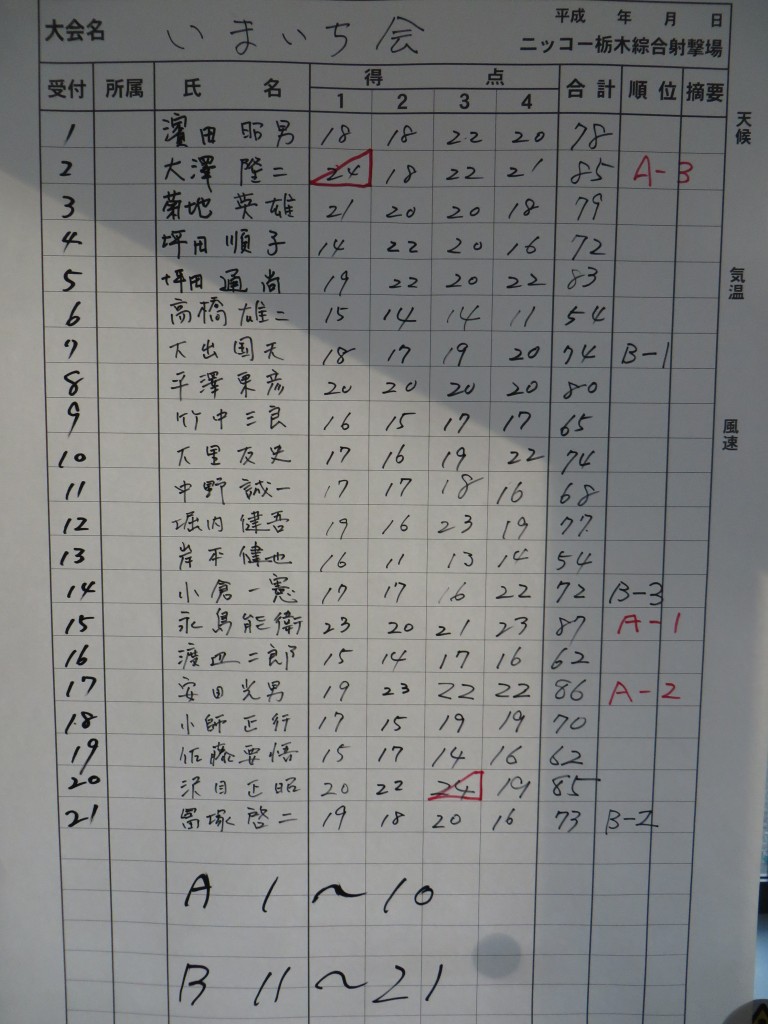 大会名 いまいち会 平成 年 月 日
ニッコー栃木綜合射撃場
受付 所属 氏 名 得 点 合計 順位 摘要
1 2 3 4
天候
1 濱田 昭男 18 18 22 20 78
2 大澤 隆二 24 18 22 21 85 A-3
3 菊地 英雄 21 20 20 18 79
4 坪田 順子 14 22 20 16 72
気温
5 坪田 通尚 19 22 20 22 83
6 高橋 雄二 15 14 14 11 54
7 大出 国夫 18 17 19 20 74 B-1
8 平澤 栗彦 20 20 20 20 80
風速
9 竹中 三良 16 15 17 17 65
10 大里 友史 17 16 19 22 74
11 中野 誠一 17 17 18 16 68
12 堀内 健吾 19 16 23 19 77
13 岸本 健也 16 11 13 14 54
14 小倉 一憲 17 17 16 22 72 B-3
15 永島 能衛 23 20 21 23 87 A-1
16 渡辺 二郎 15 14 17 16 62
17 安田 光男 19 23 22 22 86 A-2
18 小師 正行 17 15 19 19 70
19 佐藤 要悟 15 17 14 16 62
20 沢目 正昭 20 22 24 19 85
21 冨塚 啓二 19 18 20 16 73 B-2
A 1〜10
B 11〜21